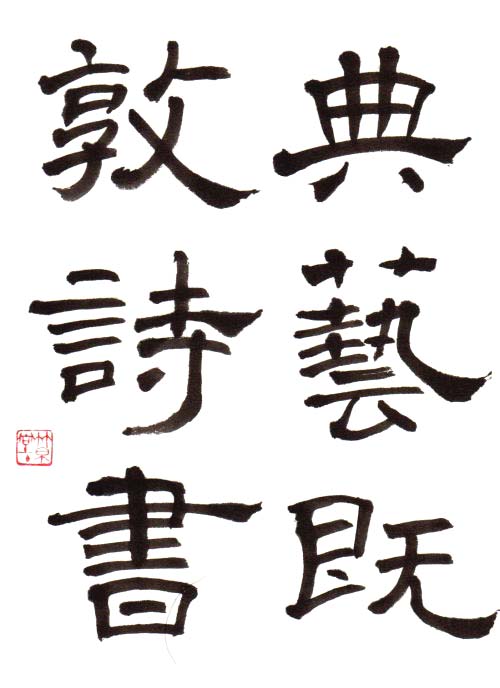 典藝既
敦詩書